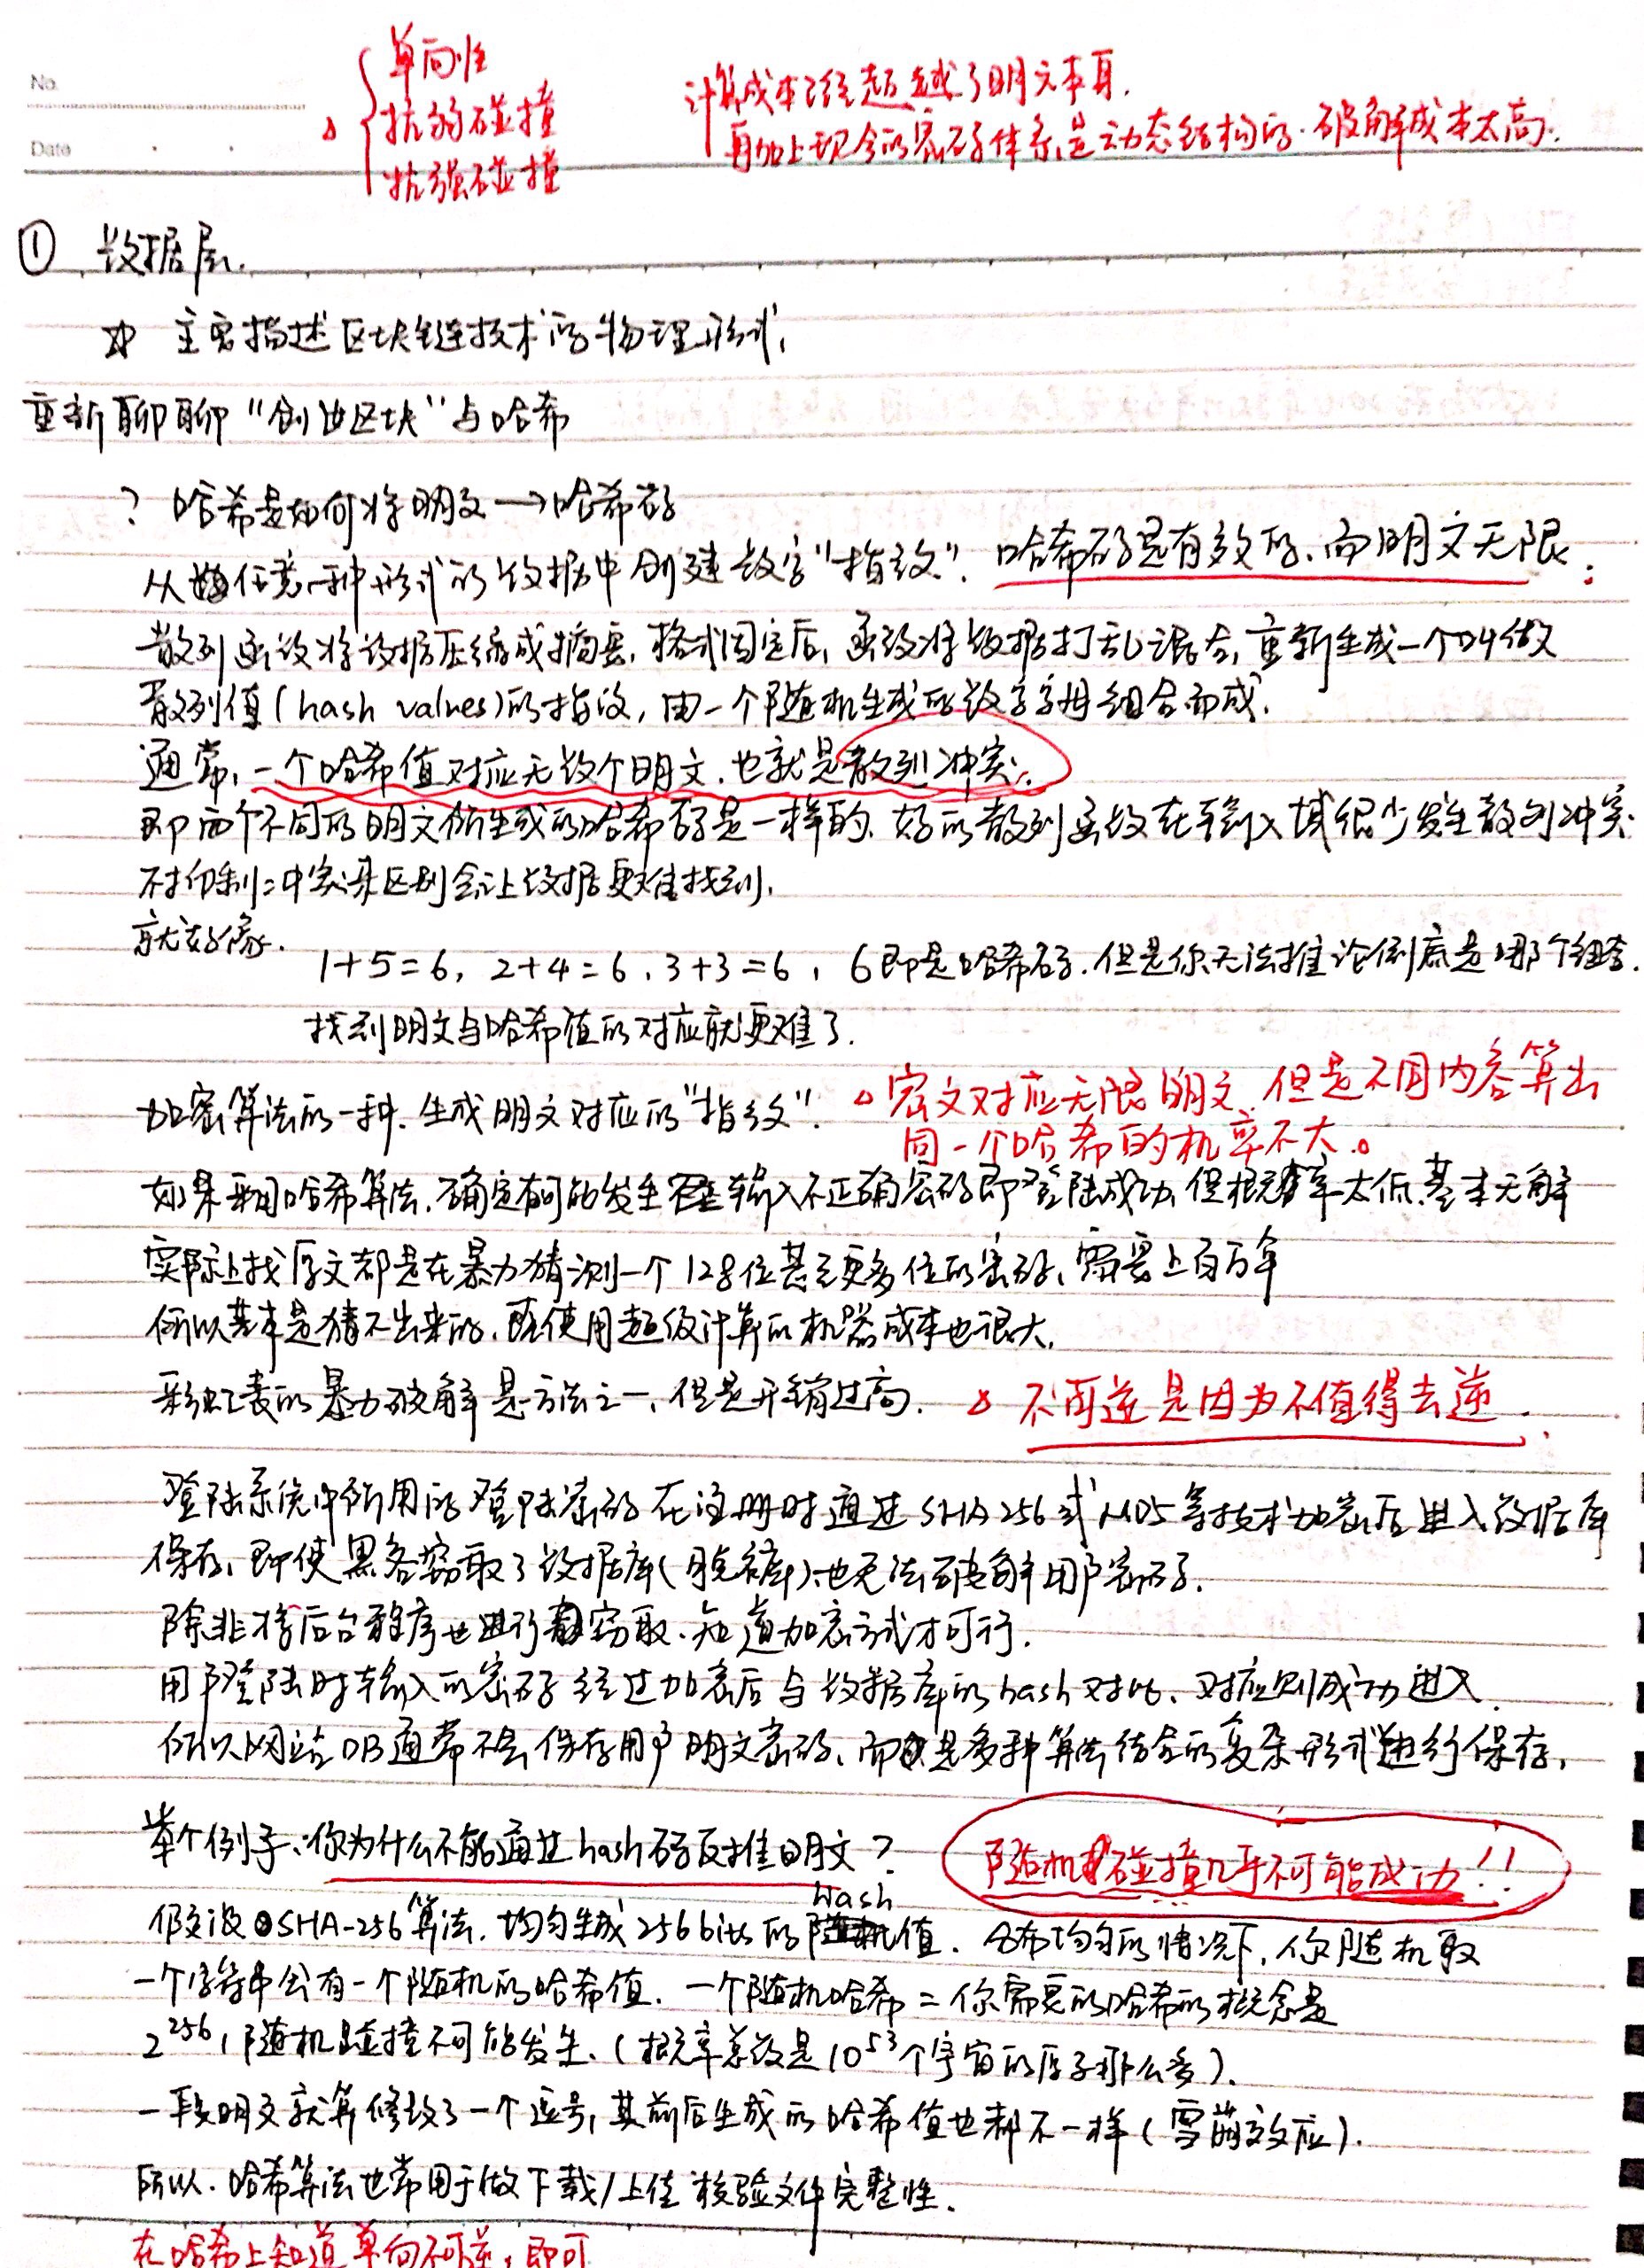 No.
Date
△ 单向性
抗弱碰撞
抗强碰撞
计算成本已经超越了明文本身.
再加上现今的密码体系是动态结构的.破解成本太高.
① 数据层.
☆ 主要描述区块链技术的物理形式,
重新聊聊"创世区块"与哈希
? 哈希是如何将明文→哈希码
从任意一种形式的数据中创建数字"指纹". 哈希码是有数的.而明文无限;
散列函数将数据压缩成摘要,格式固定后,函数将数据打乱混合,重新生成一个叫做
散列值(hash values)的指纹,由一个随机生成的数字字母组合而成.
通常,一个哈希值对应无数个明文.也就是散列冲突.
即两个不同的明文所生成的哈希码是一样的.好的散列函数在输入域很少发生散列冲突.
不抑制冲突来区别会让数据更难找到.
就好像.
1+5=6, 2+4=6, 3+3=6, 6即是哈希码.但是你无法推论倒底是哪个组合.
找到明文与哈希值的对应就更难了.
加密算法的一种.生成明文对应的"指纹".
△密文对应无限明文,但是不同内容算出
同一个哈希的机率不大。
如果采用哈希算法.确定有可能发生输入不正确密码即登陆成功,但概率太低.基本无解
实际上找原文都是在暴力猜测一个128位甚至更多位的密码,需要上百万年
所以基本是猜不出来的.既使用超级计算的机器成本也很大.
彩虹表的暴力破解是方法之一,但是开销过高. △ 不可逆是因为不值得去逆.
登陆系统中所用的登陆密码在注册时通过SHA256或MD5等技术加密后进入数据库
保存,即使黑客窃取了数据库(脱裤)也无法破解用户密码.
除非将后台程序也进行窃取.知道加密方式才可行.
用户登陆时输入的密码经过加密后与数据库的hash对比、对应则成功进入.
所以网站DB通常不会保存用户明文密码、而是多种算法结合的复杂形式进行保存.
举个例子:你为什么不能通过hash码反推明文?
随机碰撞几乎不可能成功!!
假设SHA-256算法.均匀生成256bits的hash值.分布均匀的情况下,你随机取
一个字符串会有一个随机的哈希值.一个随机哈希=你需要的哈希的概念是
2^256,随机碰撞不可能发生.(概率总数是10^53个宇宙的原子那么多).
一段明文就算修改了一个逗号,其前后生成的哈希值也都不一样(雪崩效应).
所以.哈希算法也常用于做下载/上传校验文件完整性.
在哈希上知道单向不可逆,即可